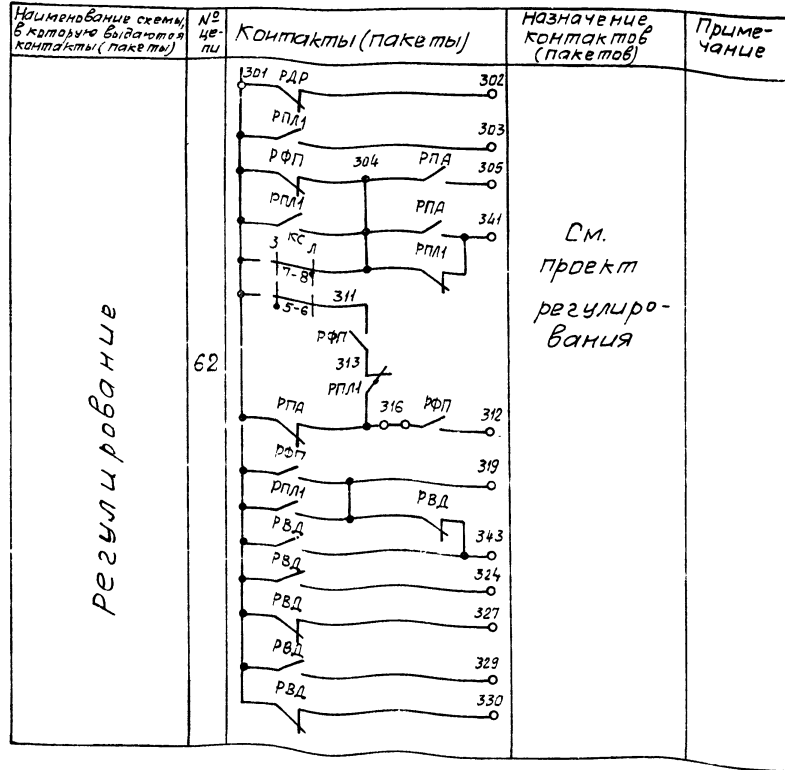 Наименование схемы,
в которую выдаются
контакты (пакеты)
№
це-
пи
Контакты (пакеты)
Назначение
контактов
(пакетов)
Приме-
чание
Регулирование
62
301 РДР 302
РПЛ1 303
РФП 304 РПА 305
РПЛ1 РПА 341
З КС Л РПЛ1
7-8
5-6 311
РФП
313
РПЛ1
РПА 316 РФП 312
РФП 319
РПЛ1 РВД
РВД 343
РВД 324
РВД 327
РВД 329
РВД 330
См.
проект
регулиро-
вания